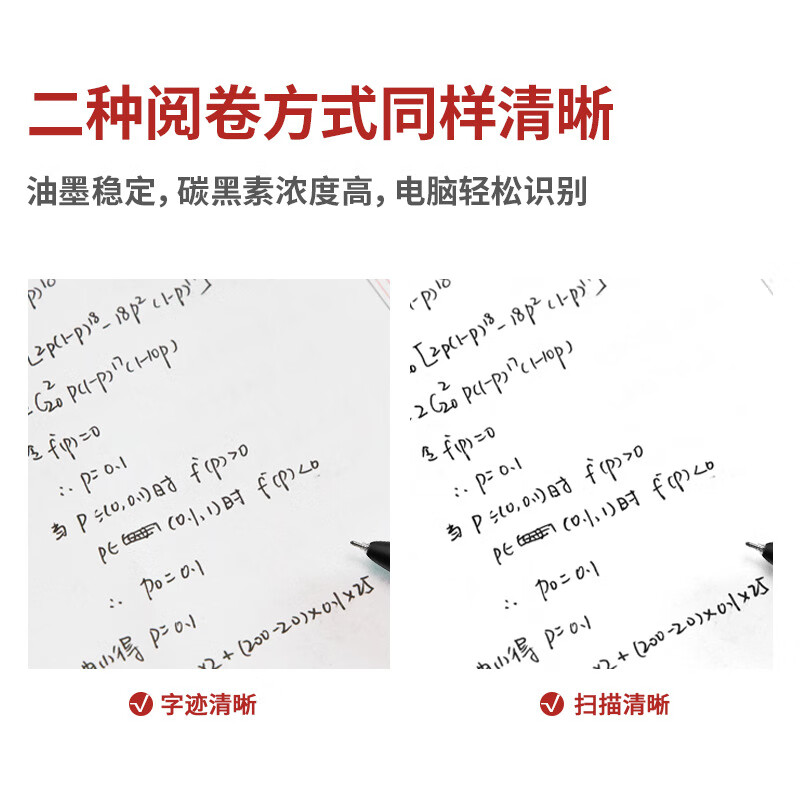 二种阅卷方式同样清晰
油墨稳定，碳黑素浓度高，电脑轻松识别
[2p(1-p)¹⁸-18p²(1-p)¹⁷]
=C²₂₀ p(1-p)¹⁷(1-10p)
令 f'(p)=0
∴ p=0.1
当 P=(0,0.1)时 f'(p)>0
p∈ (0.1,1)时 f'(p)<0
∴ p₀=0.1
由(1)得 p=0.1
×2+(200-20)×0.1×25
字迹清晰
[2p(1-p)¹⁸-18p²(1-p)¹⁷]
.2C²₂₀ p(1-p)¹⁷(1-10p)
令 f'(p)=0
∴ p=0.1
当 P=(0,0.1)时 f'(p)>0
p∈ (0.1,1)时 f'(p)<0
∴ p₀=0.1
由(1)得 p=0.1
×2+(200-20)×0.1×25
扫描清晰